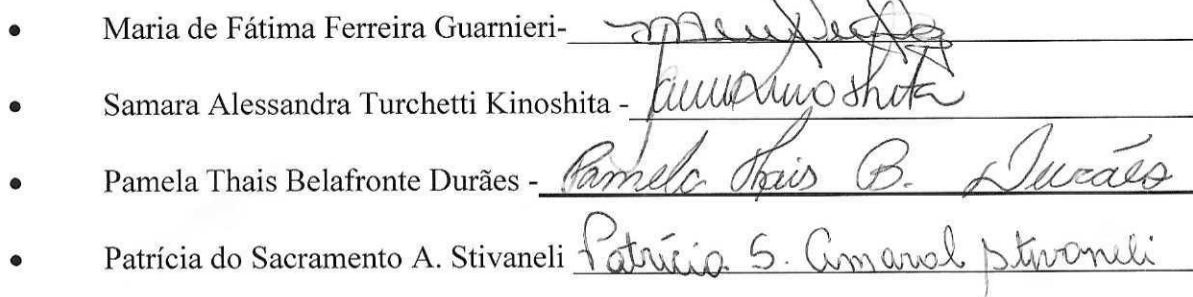 • Maria de Fátima Ferreira Guarnieri-
• Samara Alessandra Turchetti Kinoshita - Kinoshita
• Pamela Thais Belafronte Durães - Pamela Thais B. Durães
• Patrícia do Sacramento A. Stivaneli Patrícia S. Amaral Stivaneli